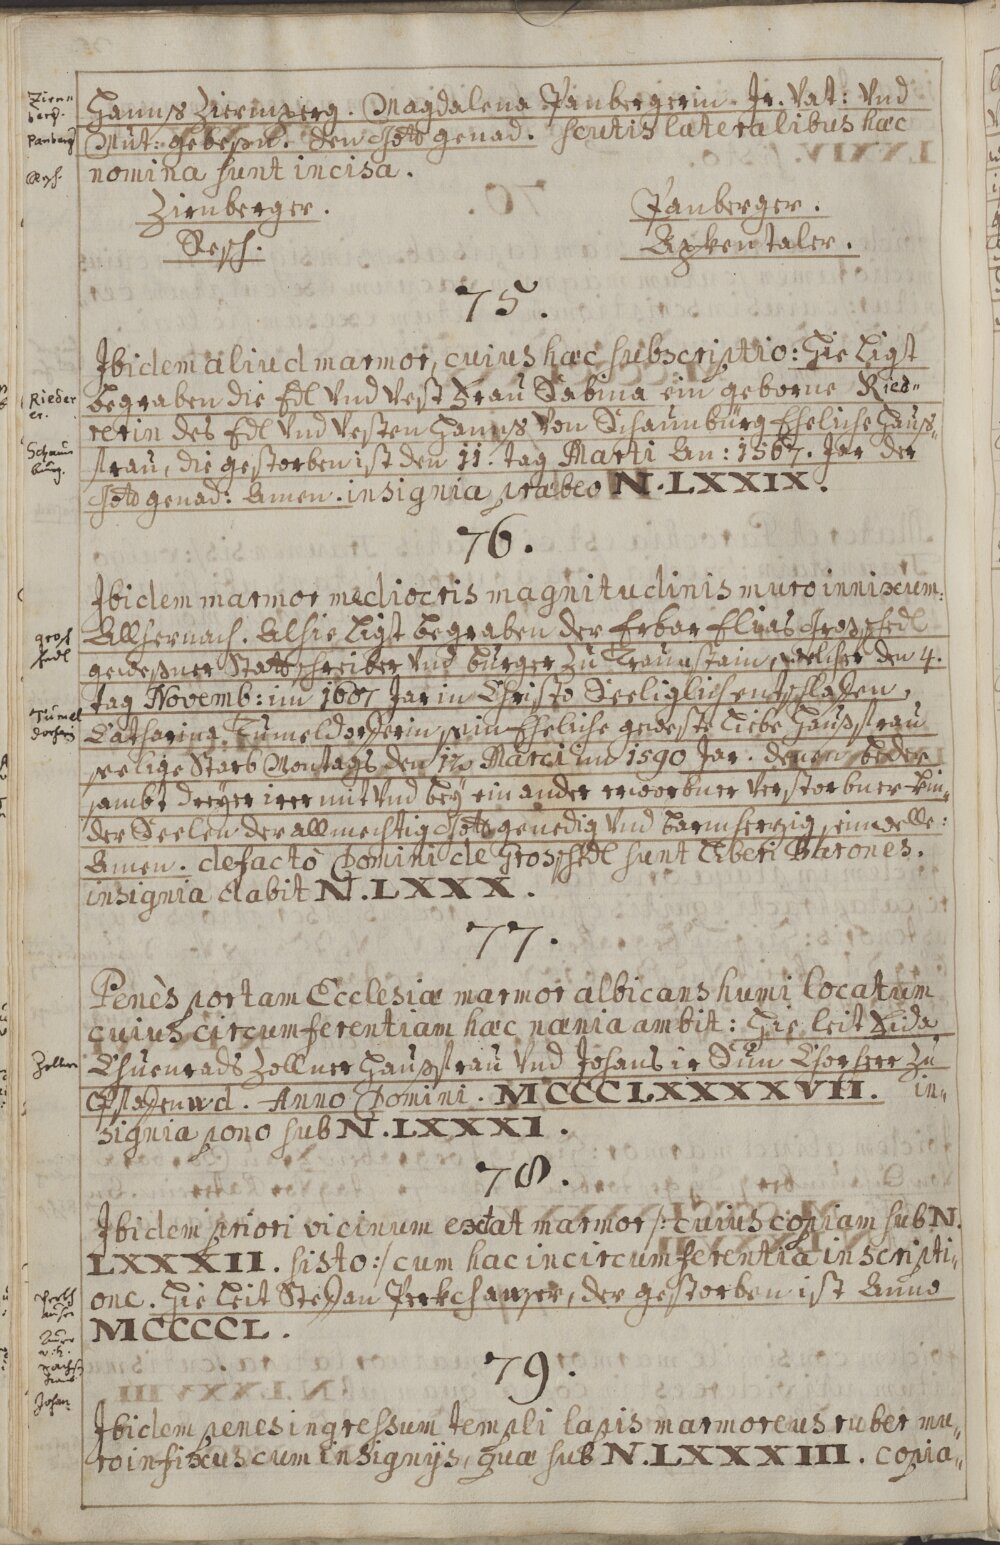 Hanns Ziernperg. Magdalena Panbergerin. Ir. Vat: Vnd
Mut: gebesn. Den Gott genad. scutis lateralibus hæc
nomina sunt incisa.
Zirnberger. Panberger.
Resch. Apkentaler.
75.
Ibidem aliud marmor, cuius hæc subscriptio: Hie Ligt
begraben die Edl Vnd Vest Frau Sabina ein geborne Ried-
rerin des Edl Vnd Vesten Hanns Von Schaunburg Eheliche Hauß-
frau, die gestorben ist den 11. tag Marti An: 1567. Jar der
Gott genad: Amen. insignia præbeo N. LXXIX.
76.
Ibidem marmor mediocris magnitudinis muro innixum:
Allhernach. Alhie Ligt begraben der Erbar Elias Großschedl
gewesner Stattschreiber Vnd burger zu Traunstain, welcher den 4.
tag Novemb: im 1607 Jar in Christo Seeliglich entschlaffen,
Catharina Tumeldorferin sein Eheliche geweste Liebe Haußfrau
seelige Starb Montags den 12 Marci im 1590 Jar. denen beder
sambt dreyer irer mit Vnd bey ein ander erworbner Verstorbner Kin-
der Seelen der allmechtig Gott genedig Vnd barmherzig sein welle:
Amen. de facto Domini de Groschedl sunt Liberi Barones.
insignia dabit N. LXXX.
77.
Penès portam Ecclesiæ marmor albicans humi locatum
cuius circumferentiam hæc nænia ambit: Hie leit
Chuenrads Zollner Haußfrau Vnd Johans ir Sun Chorherr zu
Anno Domini. MCCCLXXXXVII. in-
signia pono sub N. LXXXI.
78.
Ibidem priori vicinum extat marmor /: cuius copiam sub N.
LXXXII. sisto :/ cum hac in circumferentia inscripti-
one. Hie Leit Steffan, der gestorben ist Anno
MCCCCL.
79.
Ibidem penes ingressum templi lapis marmoreus ruber mu-
ro infixus cum insignijs, quæ sub N. LXXXIII. copia-
Zirn-
berg.
Panberg
Resch.
Rieder
er.
Schaun
burg.
Gros
schedl
Tumel
dorfer
Zollner